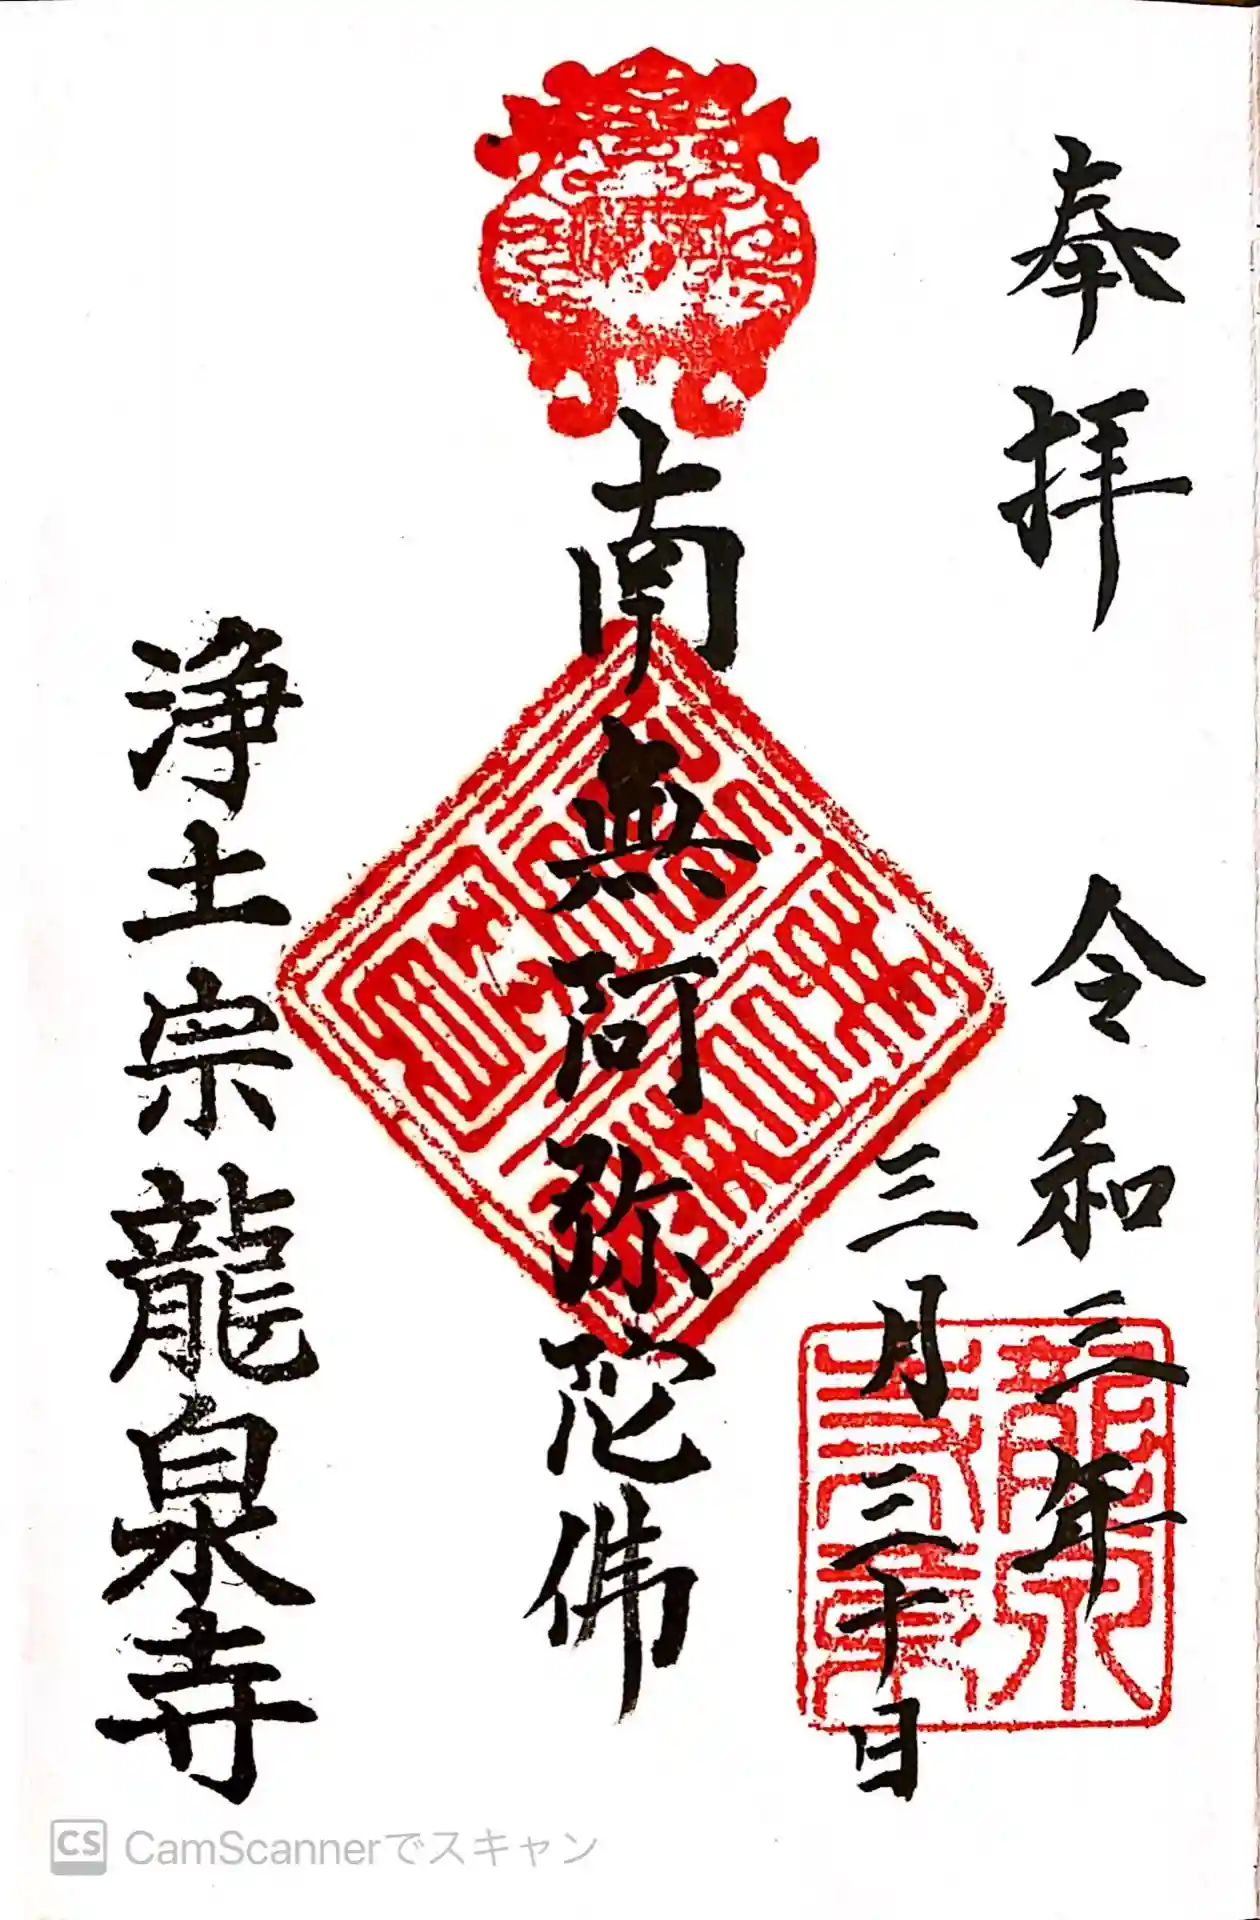 奉拝
令和三年
三月三十日
南無阿弥陀佛
浄土宗龍泉寺
龍泉寺章
CS CamScannerでスキャン